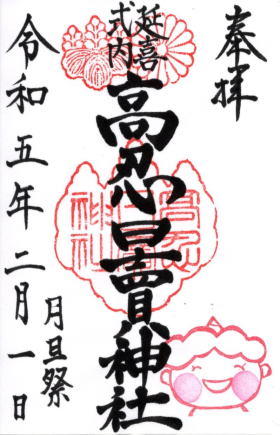 奉拝
延喜
式内
高忍日賣神社
月旦祭
令和五年二月一日